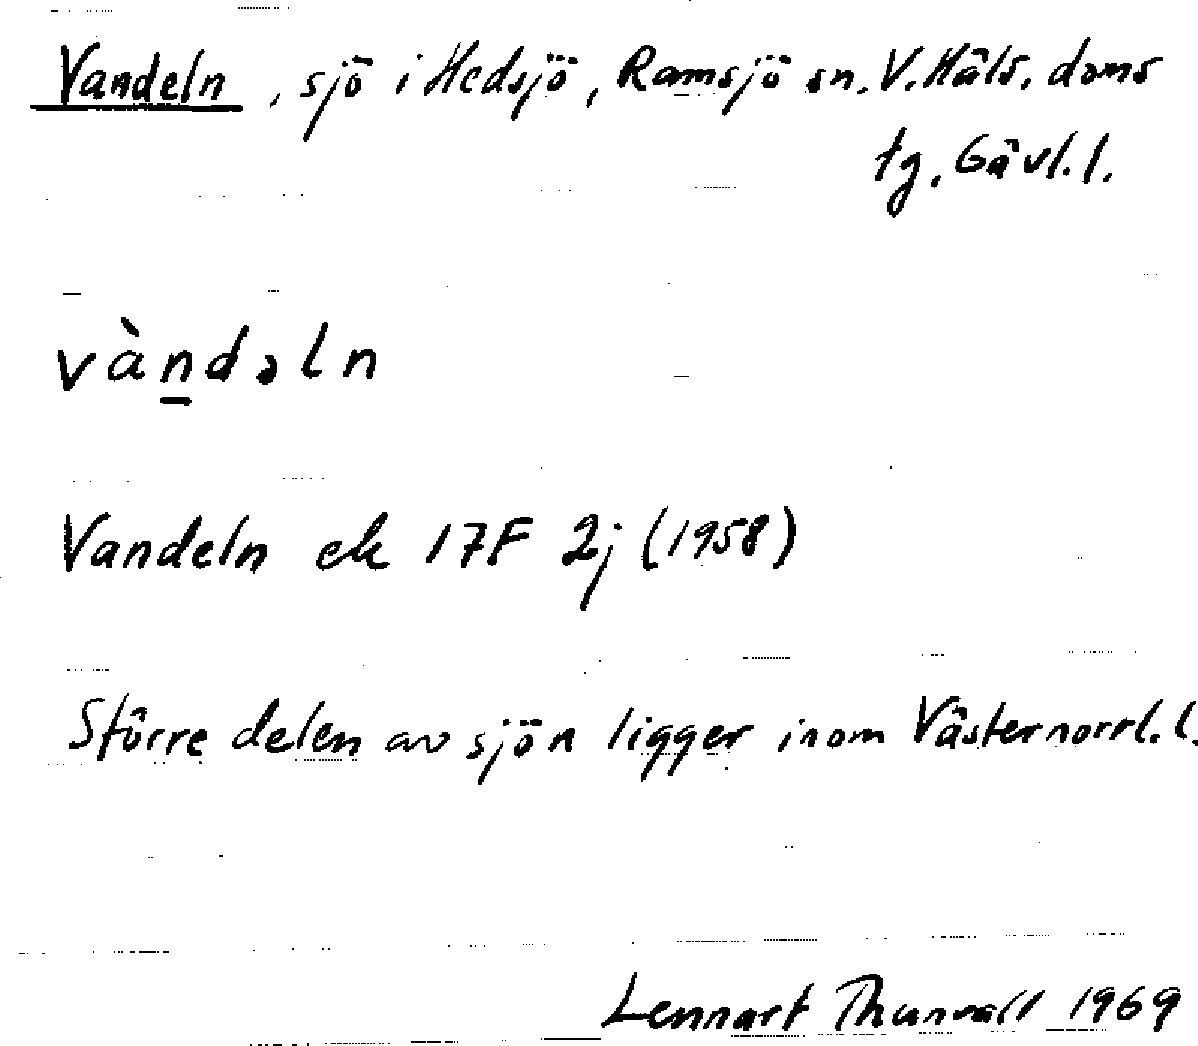 Vandeln, sjö i Hedsjö, Ramsjö sn. V. Häls. doms
tg. Gävl. l.
vàn̲dəln
Vandeln ek 17F 2j (1958)
Större delen av sjön ligger inom Västernorrl. l.
Lennart Thunvall 1969